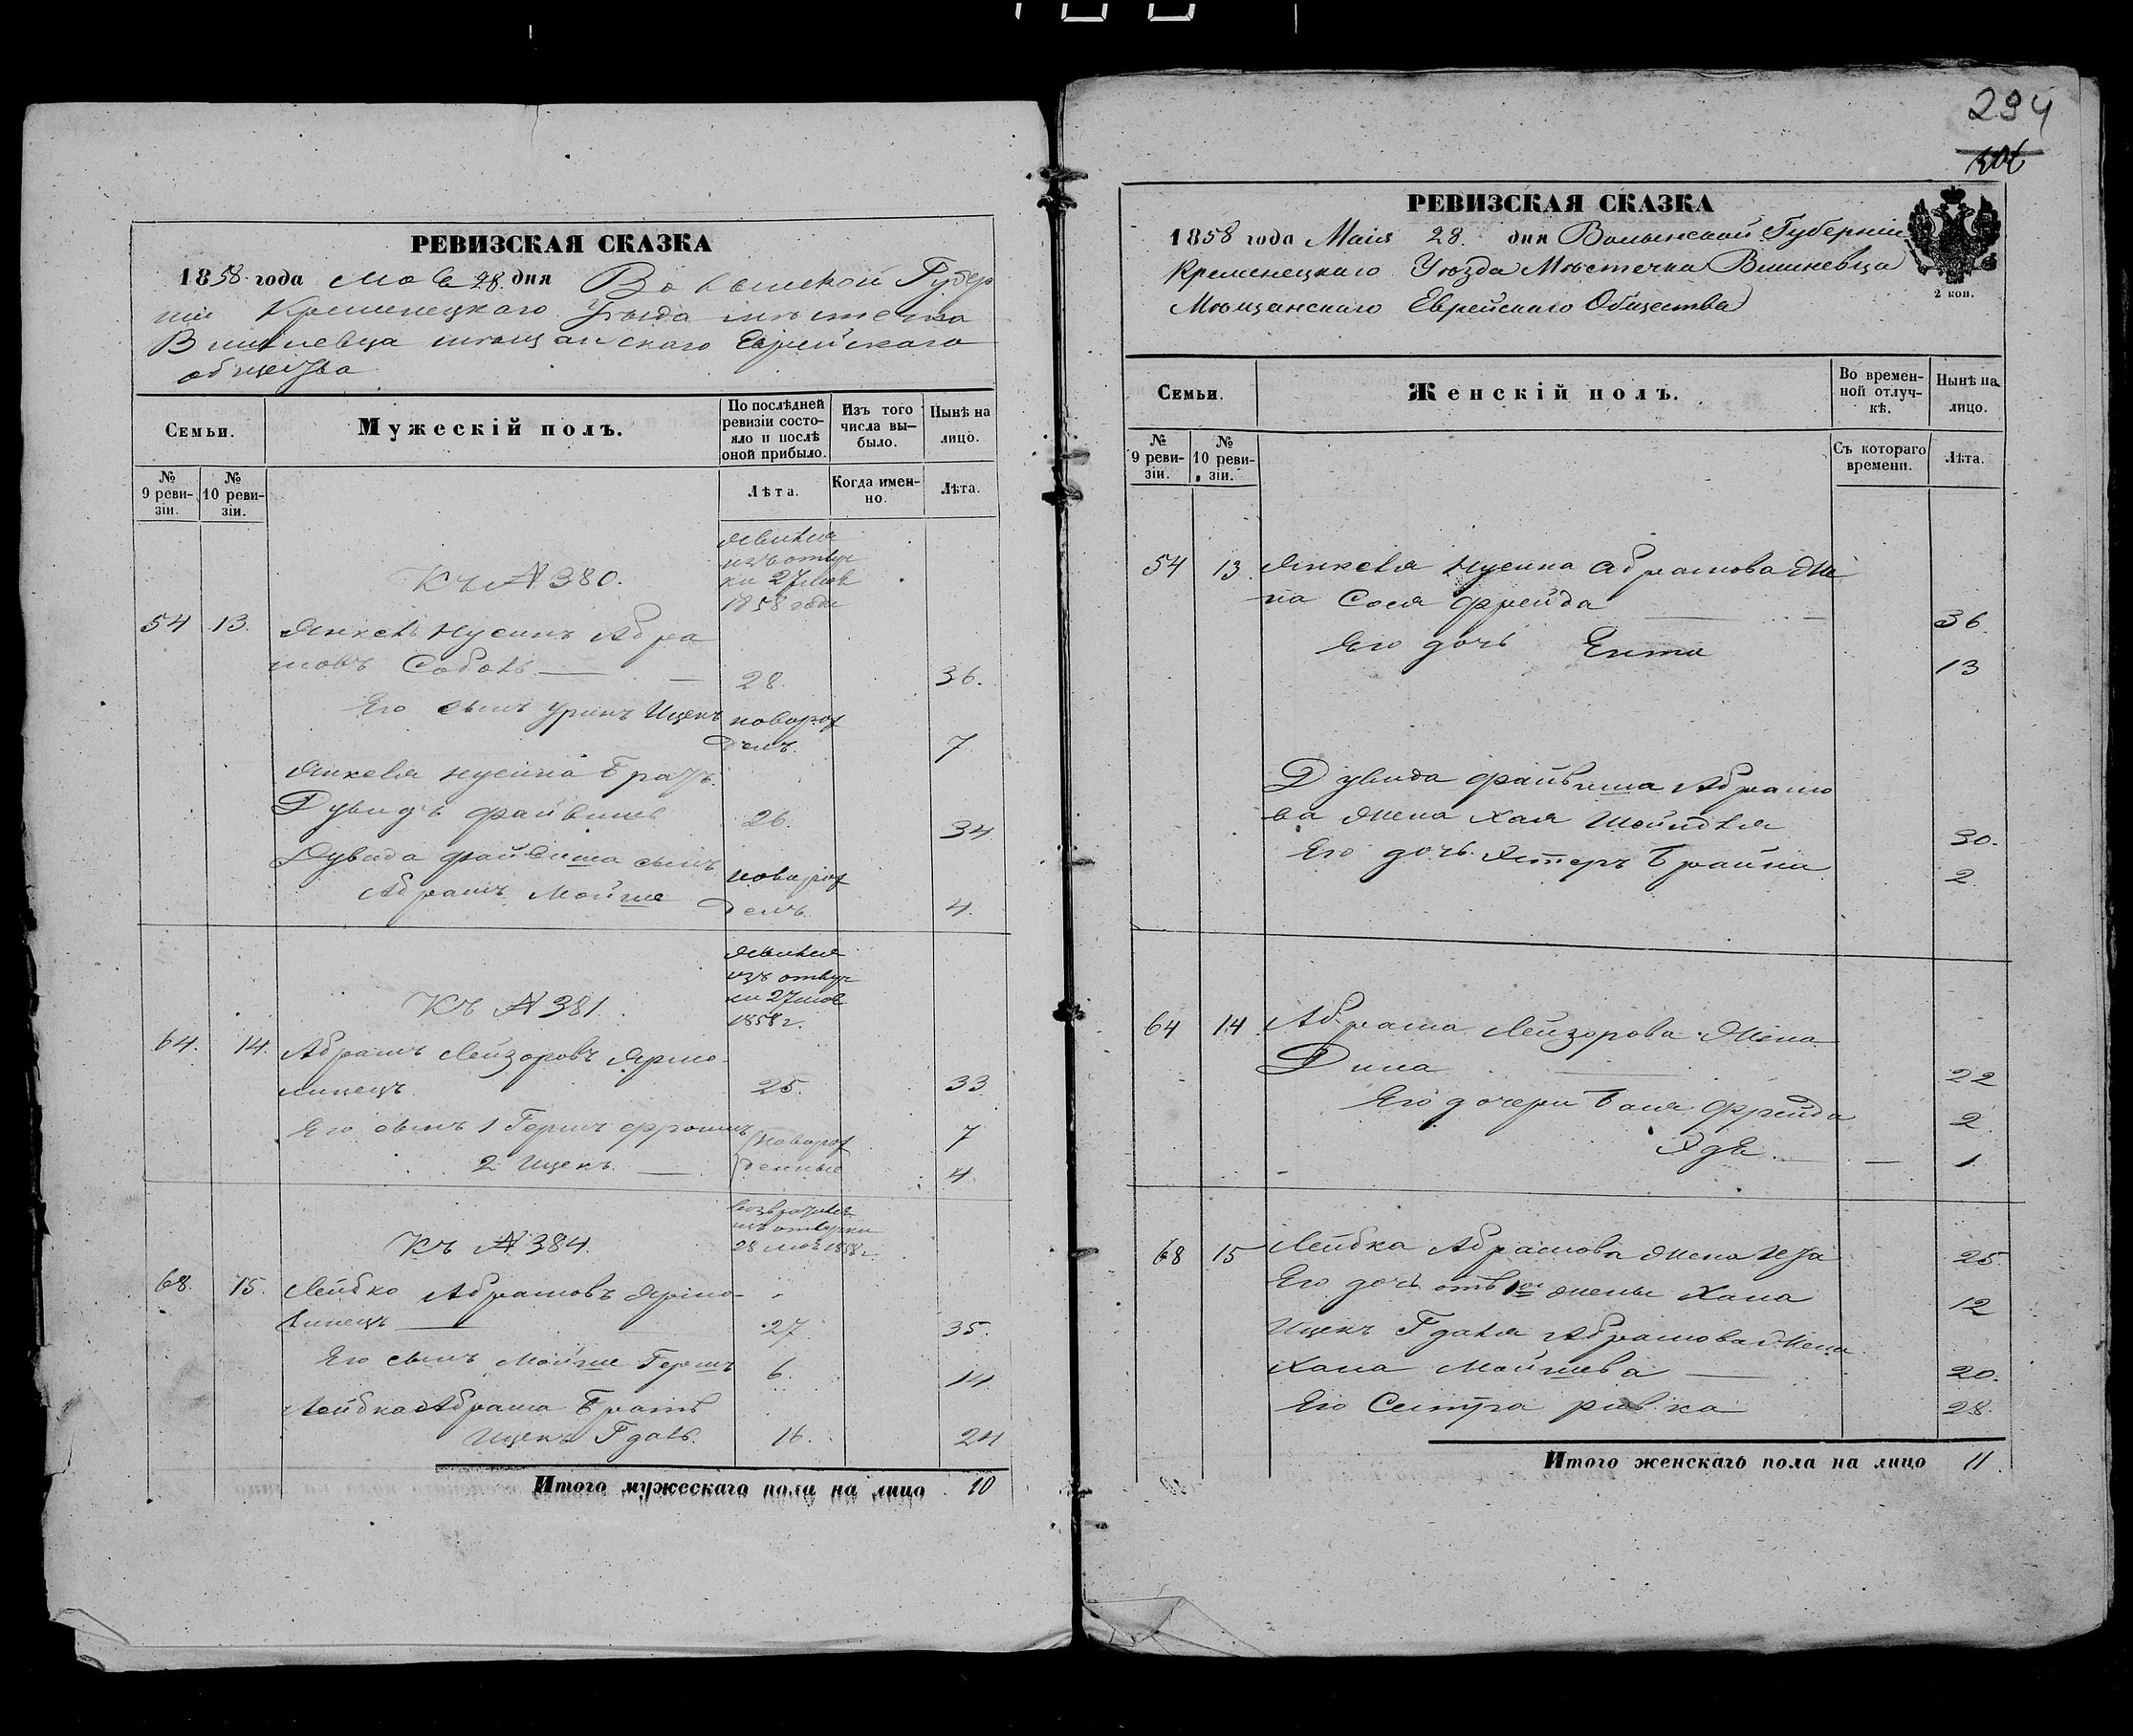 294
РЕВИЗСКАЯ СКАЗКА
1858 года Мая 28 дня Волынской Губер
ніи Кременецкаго Уѣзда мѣстечка
Вишневца мѣщанскаго Еврейскаго
общества
Семьи.
Мужескій полъ.
По послѣдней ревизіи состо-
яло и послѣ оной прибыло.
Изъ того числа вы-
было.
Нынѣ на лицо.
№ 9 реви-
зіи.
№ 10 реви-
зіи.
Лѣта.
Когда имен-
но.
Лѣта.
Къ № 380.
явился
изъ отлуч
ки 27 мая
1858 года
54 13. Янкель Нусинъ Абра
мовъ Соболь 28. 36.
Его сынъ Уринъ Ицекъ новорож
денъ. 7
Янкеля Нусина братъ
Дувидъ Файвишъ 26. 34
Дувида Файвиша сынъ
Абрамъ Мойше новорож
денъ 4.
Къ № 381.
явился
изъ отлуч
ки 27 мая
1858 г.
64. 14. Абрамъ Лейзоровъ Ярмо-
линецъ 25. 33
Его сынъ 1 Гершъ Фроимъ 7
2 Ицекъ 4
новорож
денные
Къ № 384.
изъ отлучки
28 мая 1858 г.
68. 15. Лейбко Абрамовъ Ярмо-
линецъ 27 35.
Его сынъ Мойше Гершъ 6. 14
Лейбка Абрама братъ
Ицекъ Гдаль. 16. 24
Итого мужескаго пола на лицо 10
РЕВИЗСКАЯ СКАЗКА
1858 года Маія 28. дня Волынской Губерніи
Кременецкаго Уѣзда Мѣстечка Вишневца
Мѣщанскаго Еврейскаго Общества
2 коп.
Семьи.
Женскій полъ.
Во времен-
ной отлуч-
кѣ.
Нынѣ на лицо.
№ 9 реви-
зіи.
№ 10 реви-
зіи.
Съ котораго времени.
Лѣта.
54 13. Янкеля Нусина Абрамова же
на Сося Фрейда 36.
Его дочь Ента 13
Дувида Файвиша Абрамо
ва жена Хая Шейндля 30.
Его дочь Эстеръ Брайна 2
64 14. Абрама Лейзорова жена
Дина 22
Его дочери Бася Фрейда 2
1.
68 15 Лейбка Абрамова жена 25.
Его дочь отъ 1ой жены Хана 12
Ицекъ Гдаля Абрамова жена
Хана Мойшева 20.
Его Сестра Ривка 28.
Итого женскаго пола на лицо 11.